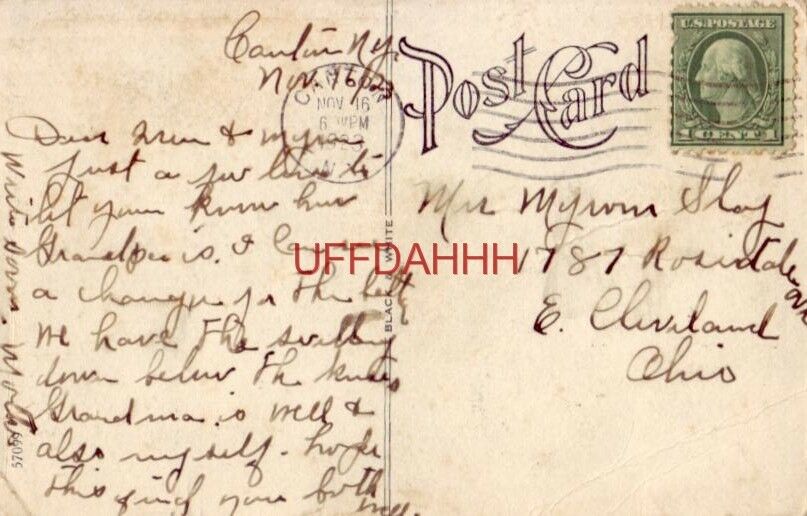 Canton N.Y.
Nov. 16/23
Dear Irene & Myron
Just a few lines to
let you know how
Grandpa is. I
a change for the better
we have the swelling
down below the knees
Grandma is well &
also myself. hope
this find you both
well.
Write soon. Mother
CANTON
NOV 16
6 PM
N.Y.
Post Card
U.S. POSTAGE
1 CENT 1
Mrs Myron Slay
1787 Rosedale
Ave
E. Cleveland
Ohio
BLACK WHITE
57099
UFFDAHHH